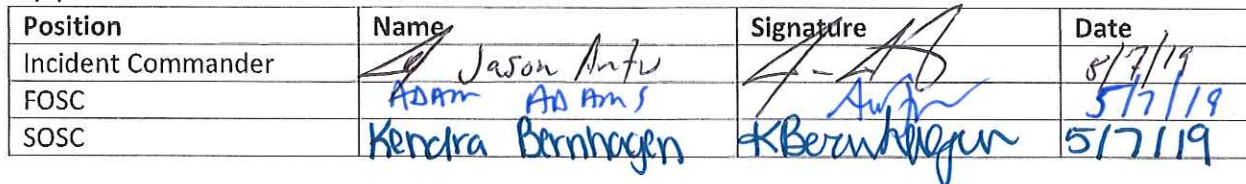 Position Name Signature Date
Incident Commander Jason 5/7/19
FOSC ADAM ADAMS 5/7/19
SOSC Kendra Bernhagen KBernhagen 5/7/19